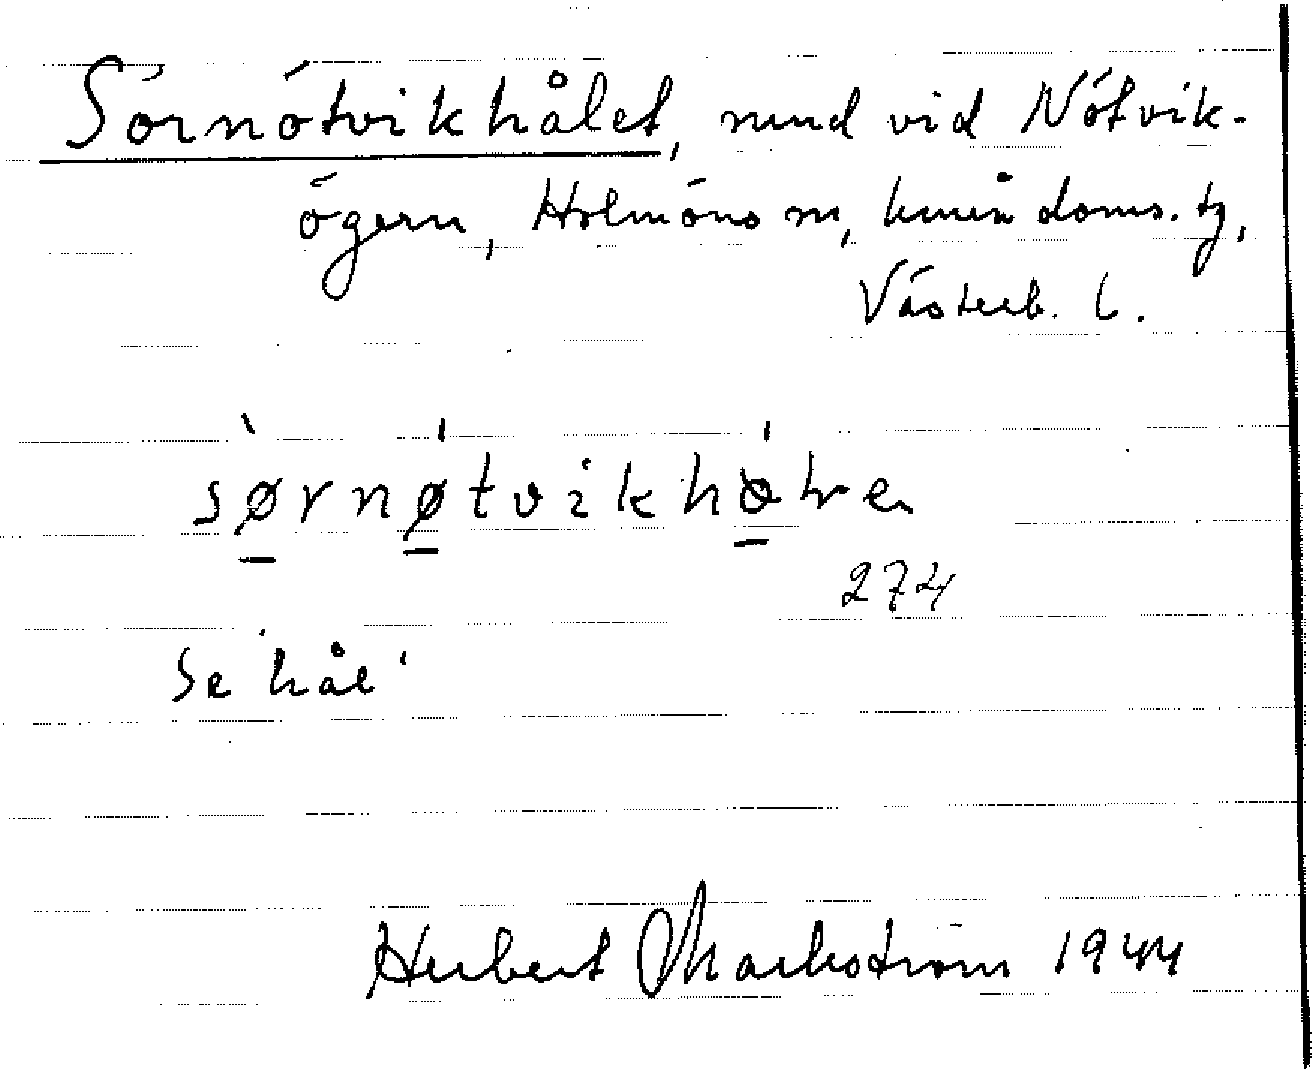 Sörnötvikhålet, sund vid Nötvik-
ögern, Holmöns sn, Umeå doms. tg,
Västerb. l.
sørnøtvikhò
274
Se hål
Herbert Markström 1944